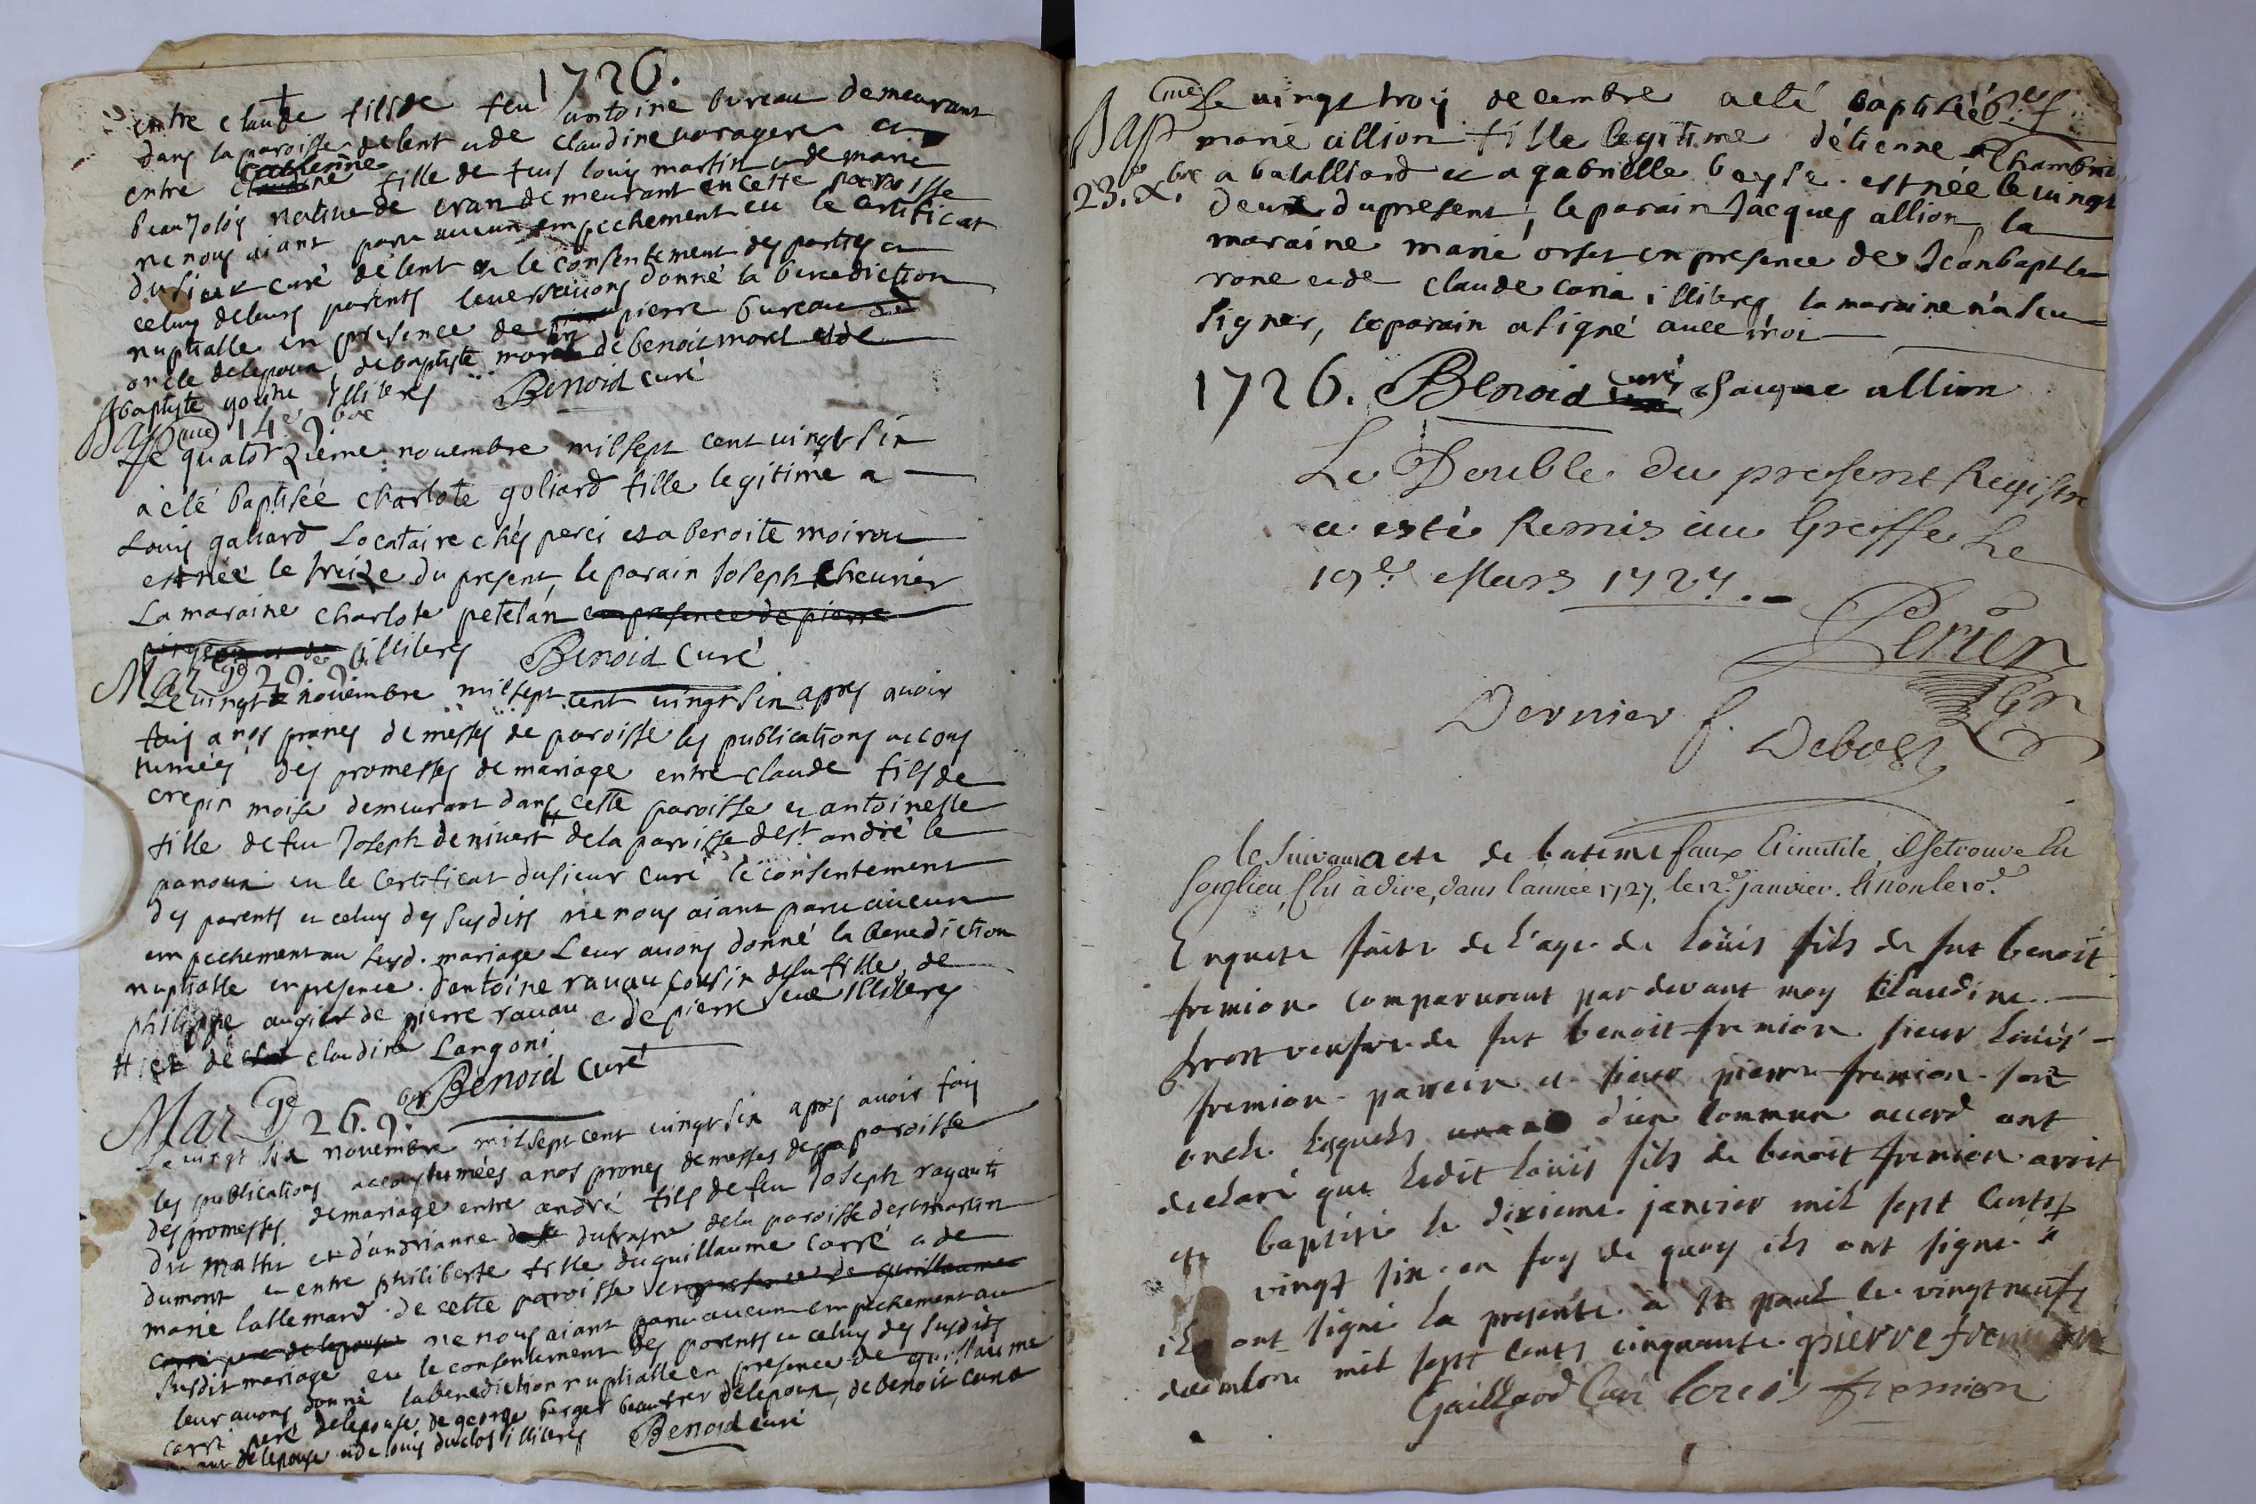 1726.
entre claude fils de feu antoine bureau demeurant
dans la paroisse delent et de claudine et
entre catherine fille de feus louis martin et de marie
beaujolois native de cran demeurant en cette paroisse
ne nous aiant paru aucun empechement eu le certificat
du sieur curé delent et le consentement des parties et
celuy de leurs parents leur avons donné la benediction
nuptialle en presence de pierre bureau
oncle delepoux de baptiste morel de benoit morel et de
baptiste illiteres Benoid curé
Bapt.me 14e 9bre
Le quatorzieme novembre mil sept cent vingt six
a eté baptisée charlote goliard fille legitime a
Louis galiard Locataire chés perci et a benoite moiroux
est née le treize du present, le parain Joseph cheurier
La maraine charlote petelan en presence de pierre
illiteres Benoid Curé
Mar.ge 20 9bre
Le vingt novembre mil sept cent vingt six apres avoir
fais a nos prones de messes de paroisse les publications accous
tumées des promesses de mariage entre claude fils de
crepin moise demeurant dans cette paroisse et antoinette
fille de feu Joseph denivert de la paroisse de st. andré le
panoux eu le Certificat du sieur curé le consentement
des parents et celuy des susdits ne nous aiant paru aucun
empechement au susd. mariage Leur avons donné la benediction
nuptialle en presence d'antoine ravau cousin de la fille, de
philippe augier de pierre ravau et de pierre illiteres
et de claudine Langoni
Benoid curé
Mar.ge 26. 9bre
Le vingt six novembre mil sept cent vingt six apres avoir fais
les publications accoustumées a nos prones de messes de paroisse
des promesses de mariage entre andré fils de feu Joseph
dit mathi et d'andrianne de la paroisse de st martin
dumont et entre philiberte fille de guillaume carré et de
marie lallemand de cette paroisse en presence de guillaume
carré pere de lepouse ne nous aiant paru aucun empechement au
susdit mariage eu le consentement des parents et celuy des susdits
leur avons donné la benediction nuptialle en presence de guillaume
carré pere delepouse de george berger beaufrere delepoux, de benoit
delepouse et de louis duclos illiteres Benoid curé
Bapt.me
23. Xbre
Le vingt trois decembre a eté baptisée
marie allion fille legitime d'etienne
a batailliard et a gabrielle beyle. est née le vingt
deux du present, le parain Jacques allion, la
maraine marie orset en presence de Jean baptiste
rone et de claude caria illiteres la maraine n'a sçu
signer, le parain a signé avec moi
1726. Benoid curé Jacque allion
Le Double du present Registre
a esté Remis au Greffe Le
19e Mars 1727.
Perier
Dernier f.
Debost
le suivant acte de bateme faux et inutile, il se trouve en
son lieu, c'est à dire, dans l'année 1727, le 12e janvier. et non le 10e
Enquete faite de l'age de Loüis fils de fut benoit
fremion comparurent par devant moy Claudine
frost veufve de fut benoit fremion sieur Loüis
fremion parrein et sieur pierre fremion son
oncle lesquels d'un commun accord ont
declaré que ledit Loüis fils de benoit fremion avoit
eté baptisé le dixieme janvier mil sept cents
vingt six. en foy de quoy ils ont signé
ils ont signé la presente a st paul le vingt neuf
decembre mil sept cents cinquante pierre fremion
Gaillard Curé louis fremion